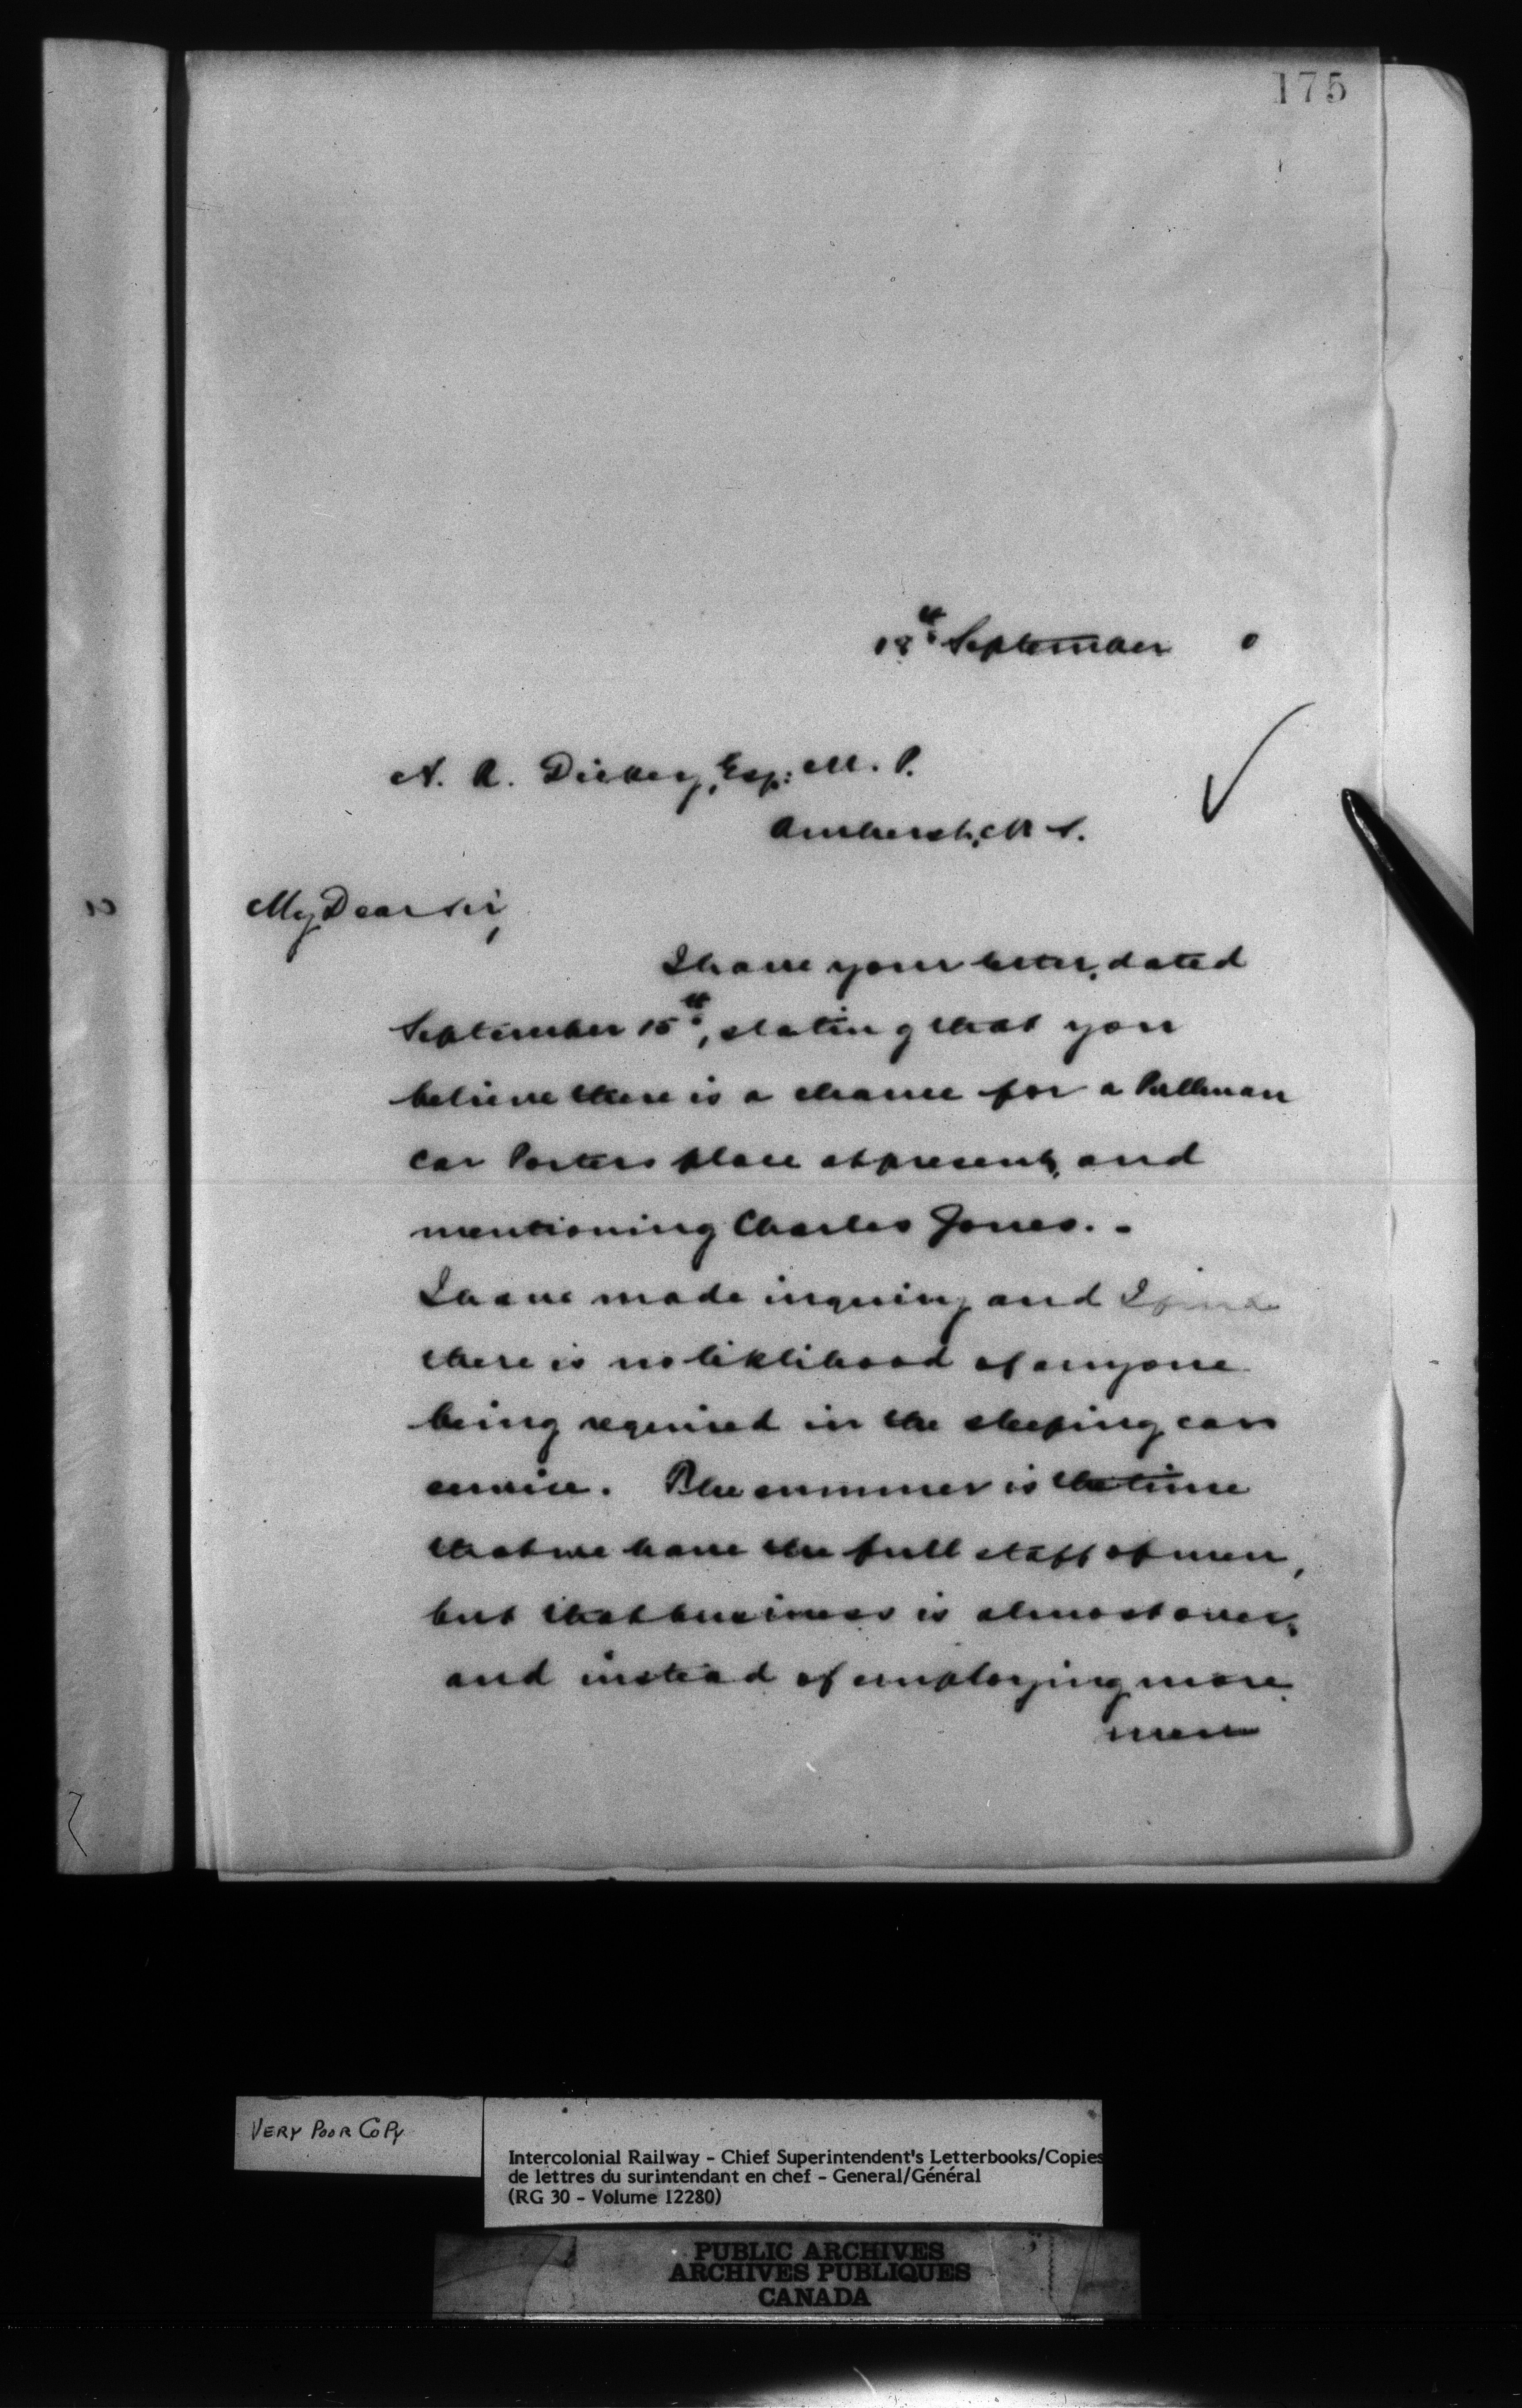 175
18th September 0
A. R. Dickey, Esq: M. P.
Amherst, N. S.
My Dear Sir,
I have your letter, dated
September 15th, stating that you
believe there is a chance for a Pullman
Car Porters place at present, and
mentioning Charles Jones. -
I have made inquiry and I find
there is no liklihood of anyone
being required in the sleeping car
service. The summer is the time
that we have the full staff of men,
but that business is almost over,
and instead of employing more
men
VERY POOR COPY
Intercolonial Railway - Chief Superintendent's Letterbooks/Copies
de lettres du surintendant en chef - General/Général
(RG 30 - Volume 12280)
PUBLIC ARCHIVES
ARCHIVES PUBLIQUES
CANADA